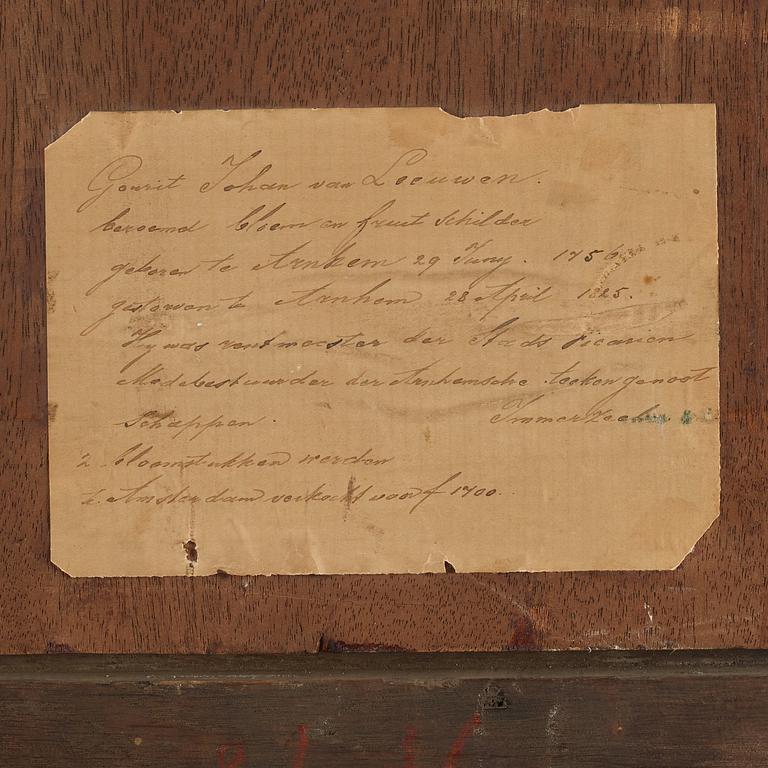 Gerrit Johan van Leeuwen.
beroemd bloem en fruit schilder
geboren te Arnhem 29 Juny. 1756
gestorven te Arnhem 28 April 1825.
Hy was rentmeester der Stads
Medebestuurder der Arnhemsche teekengenoot
schappen. Immerzeel
2 bloemstukken werden
te Amsterdam verkocht voor f 1700.